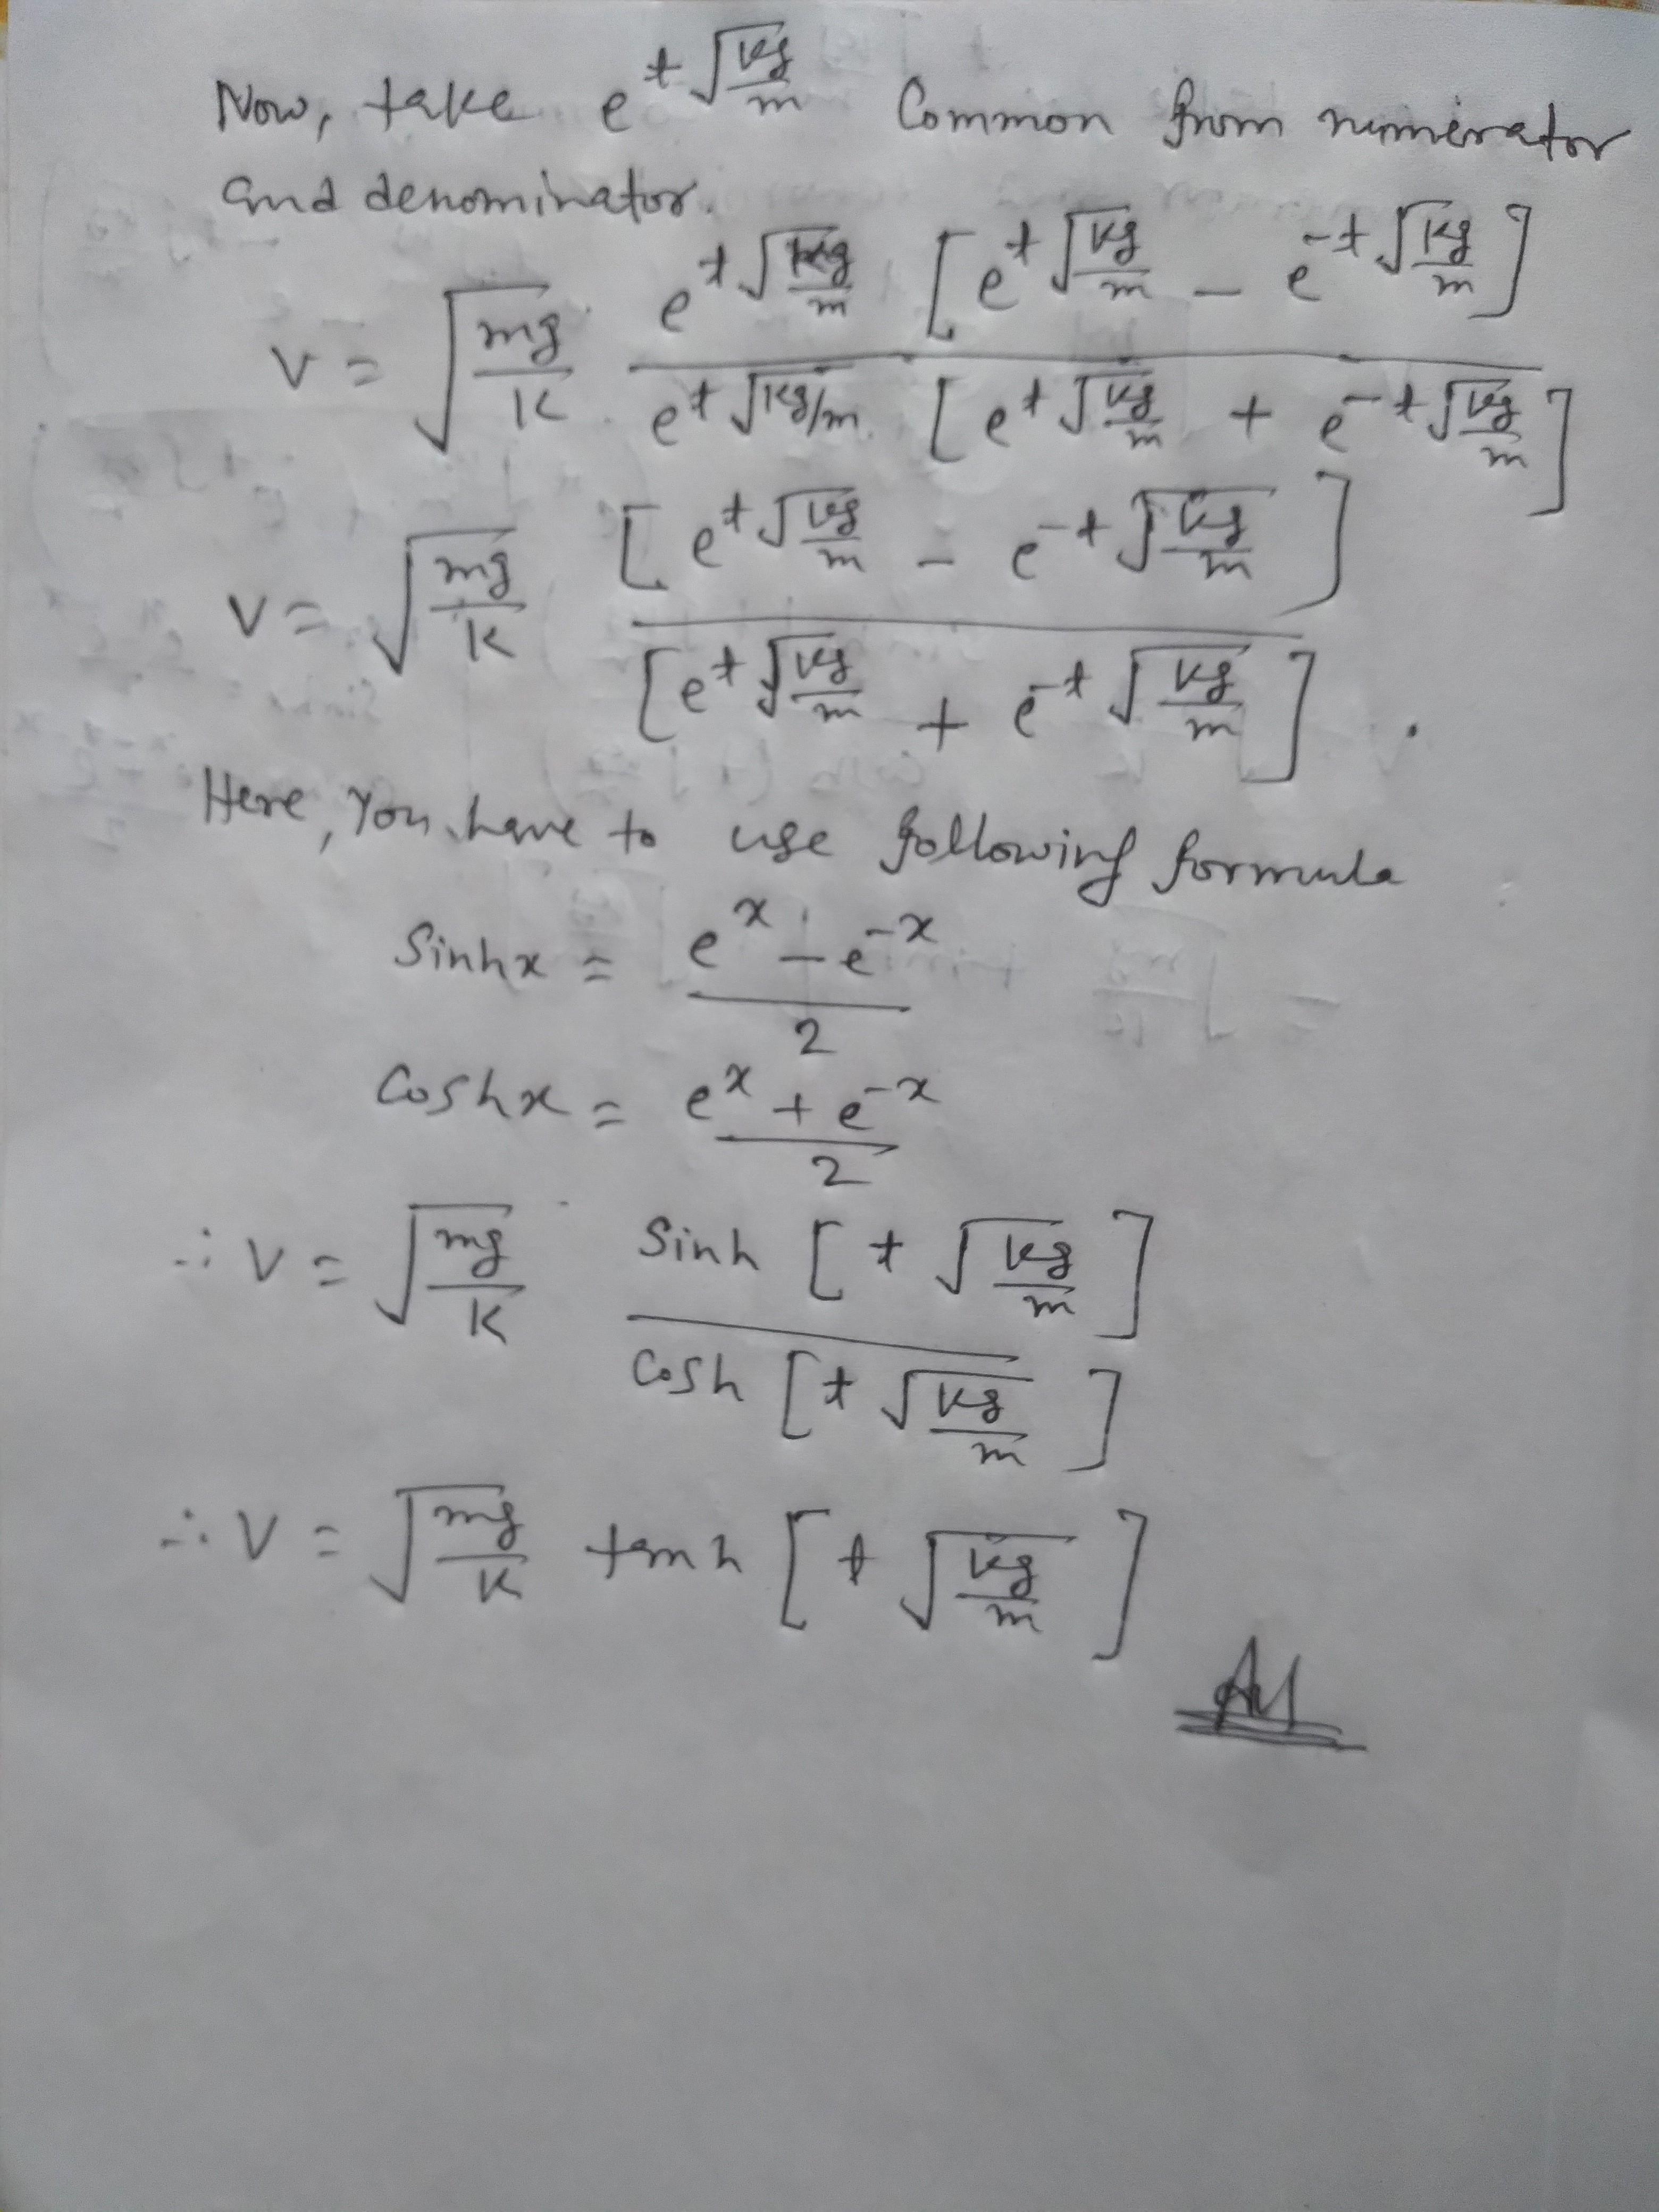 Now, take e^{t√(kg/m)} Common from numerator
and denominator.
V = √(mg/K) e^{t√(kg/m)} [e^{t√(kg/m)} - e^{-t√(kg/m)}] / e^{t√(kg/m)} [e^{t√(kg/m)} + e^{-t√(kg/m)}]
V = √(mg/K) [e^{t√(kg/m)} - e^{-t√(kg/m)}] / [e^{t√(kg/m)} + e^{-t√(kg/m)}] .
Here, You have to use following formula
Sinhx = (e^x - e^{-x}) / 2
Coshx = (e^x + e^{-x}) / 2
∴ V = √(mg/K) Sinh [t √(kg/m)] / Cosh [t √(kg/m)]
∴ V = √(mg/K) tanh [t √(kg/m)]